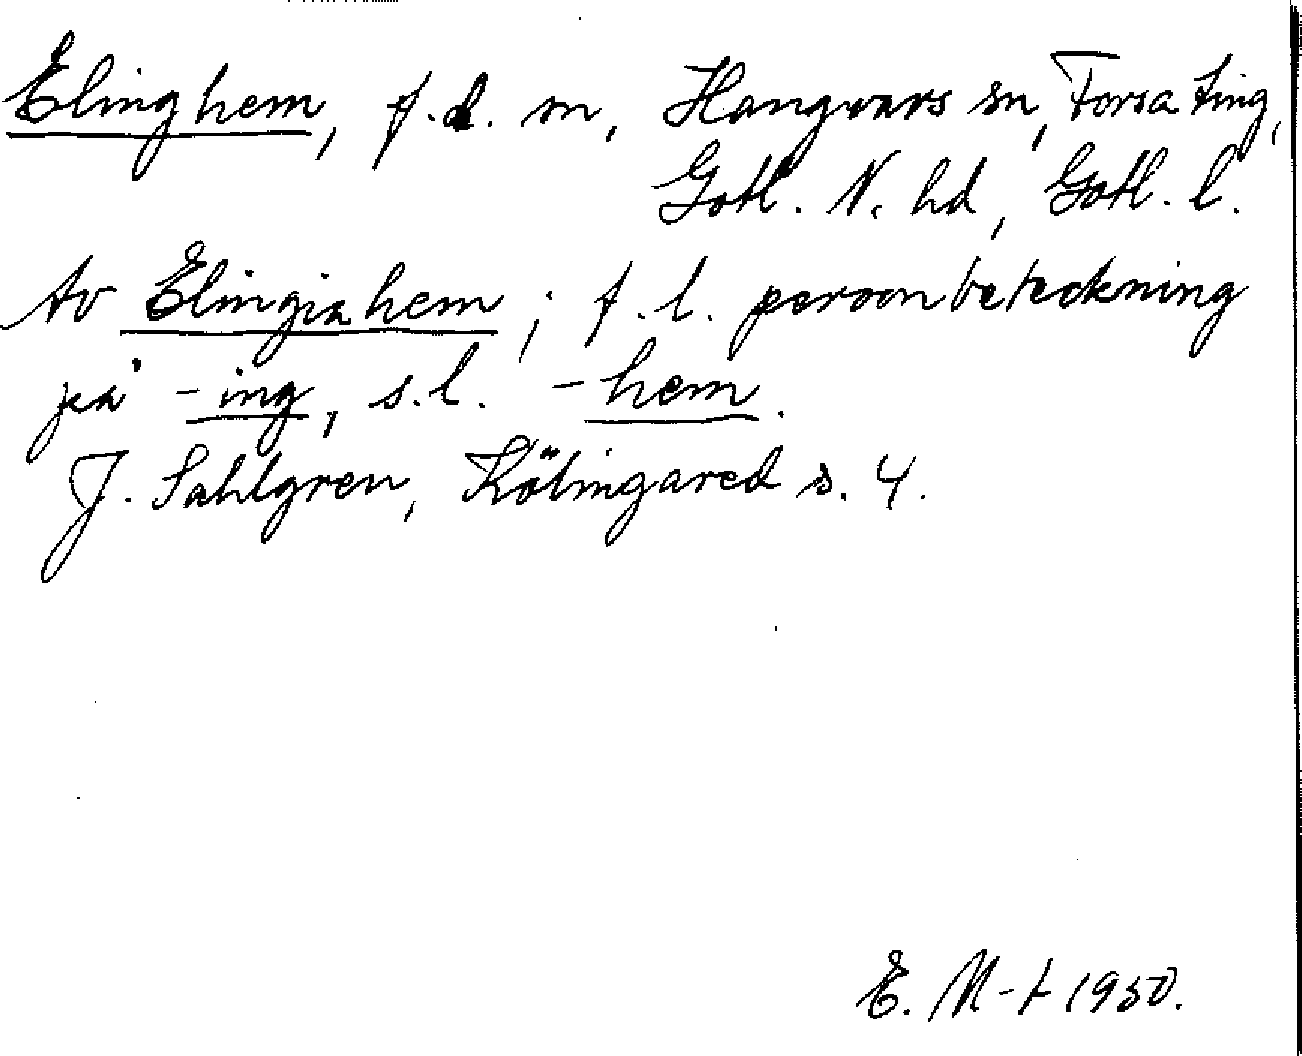 Elinghem, f.d. sn, Hangvars sn, Forsa ting,
Gotl. N. hd, Gotl. l.
Av Elingiahem; f.l. personbeteckning
på -ing, s.l. -hem.
J. Sahlgren, Kölingared s. 4.
E. M-t 1950.